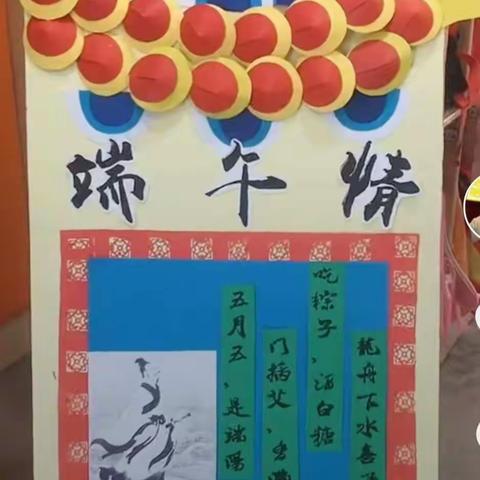 端午情
五月五、是端陽
门插艾、香满
吃粽子、洒白糖
龍舟下水喜